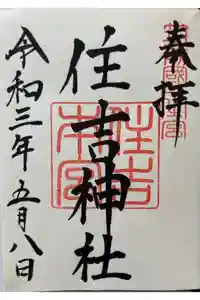 奉拝
住吉神社
住吉本宮
令和三年五月八日